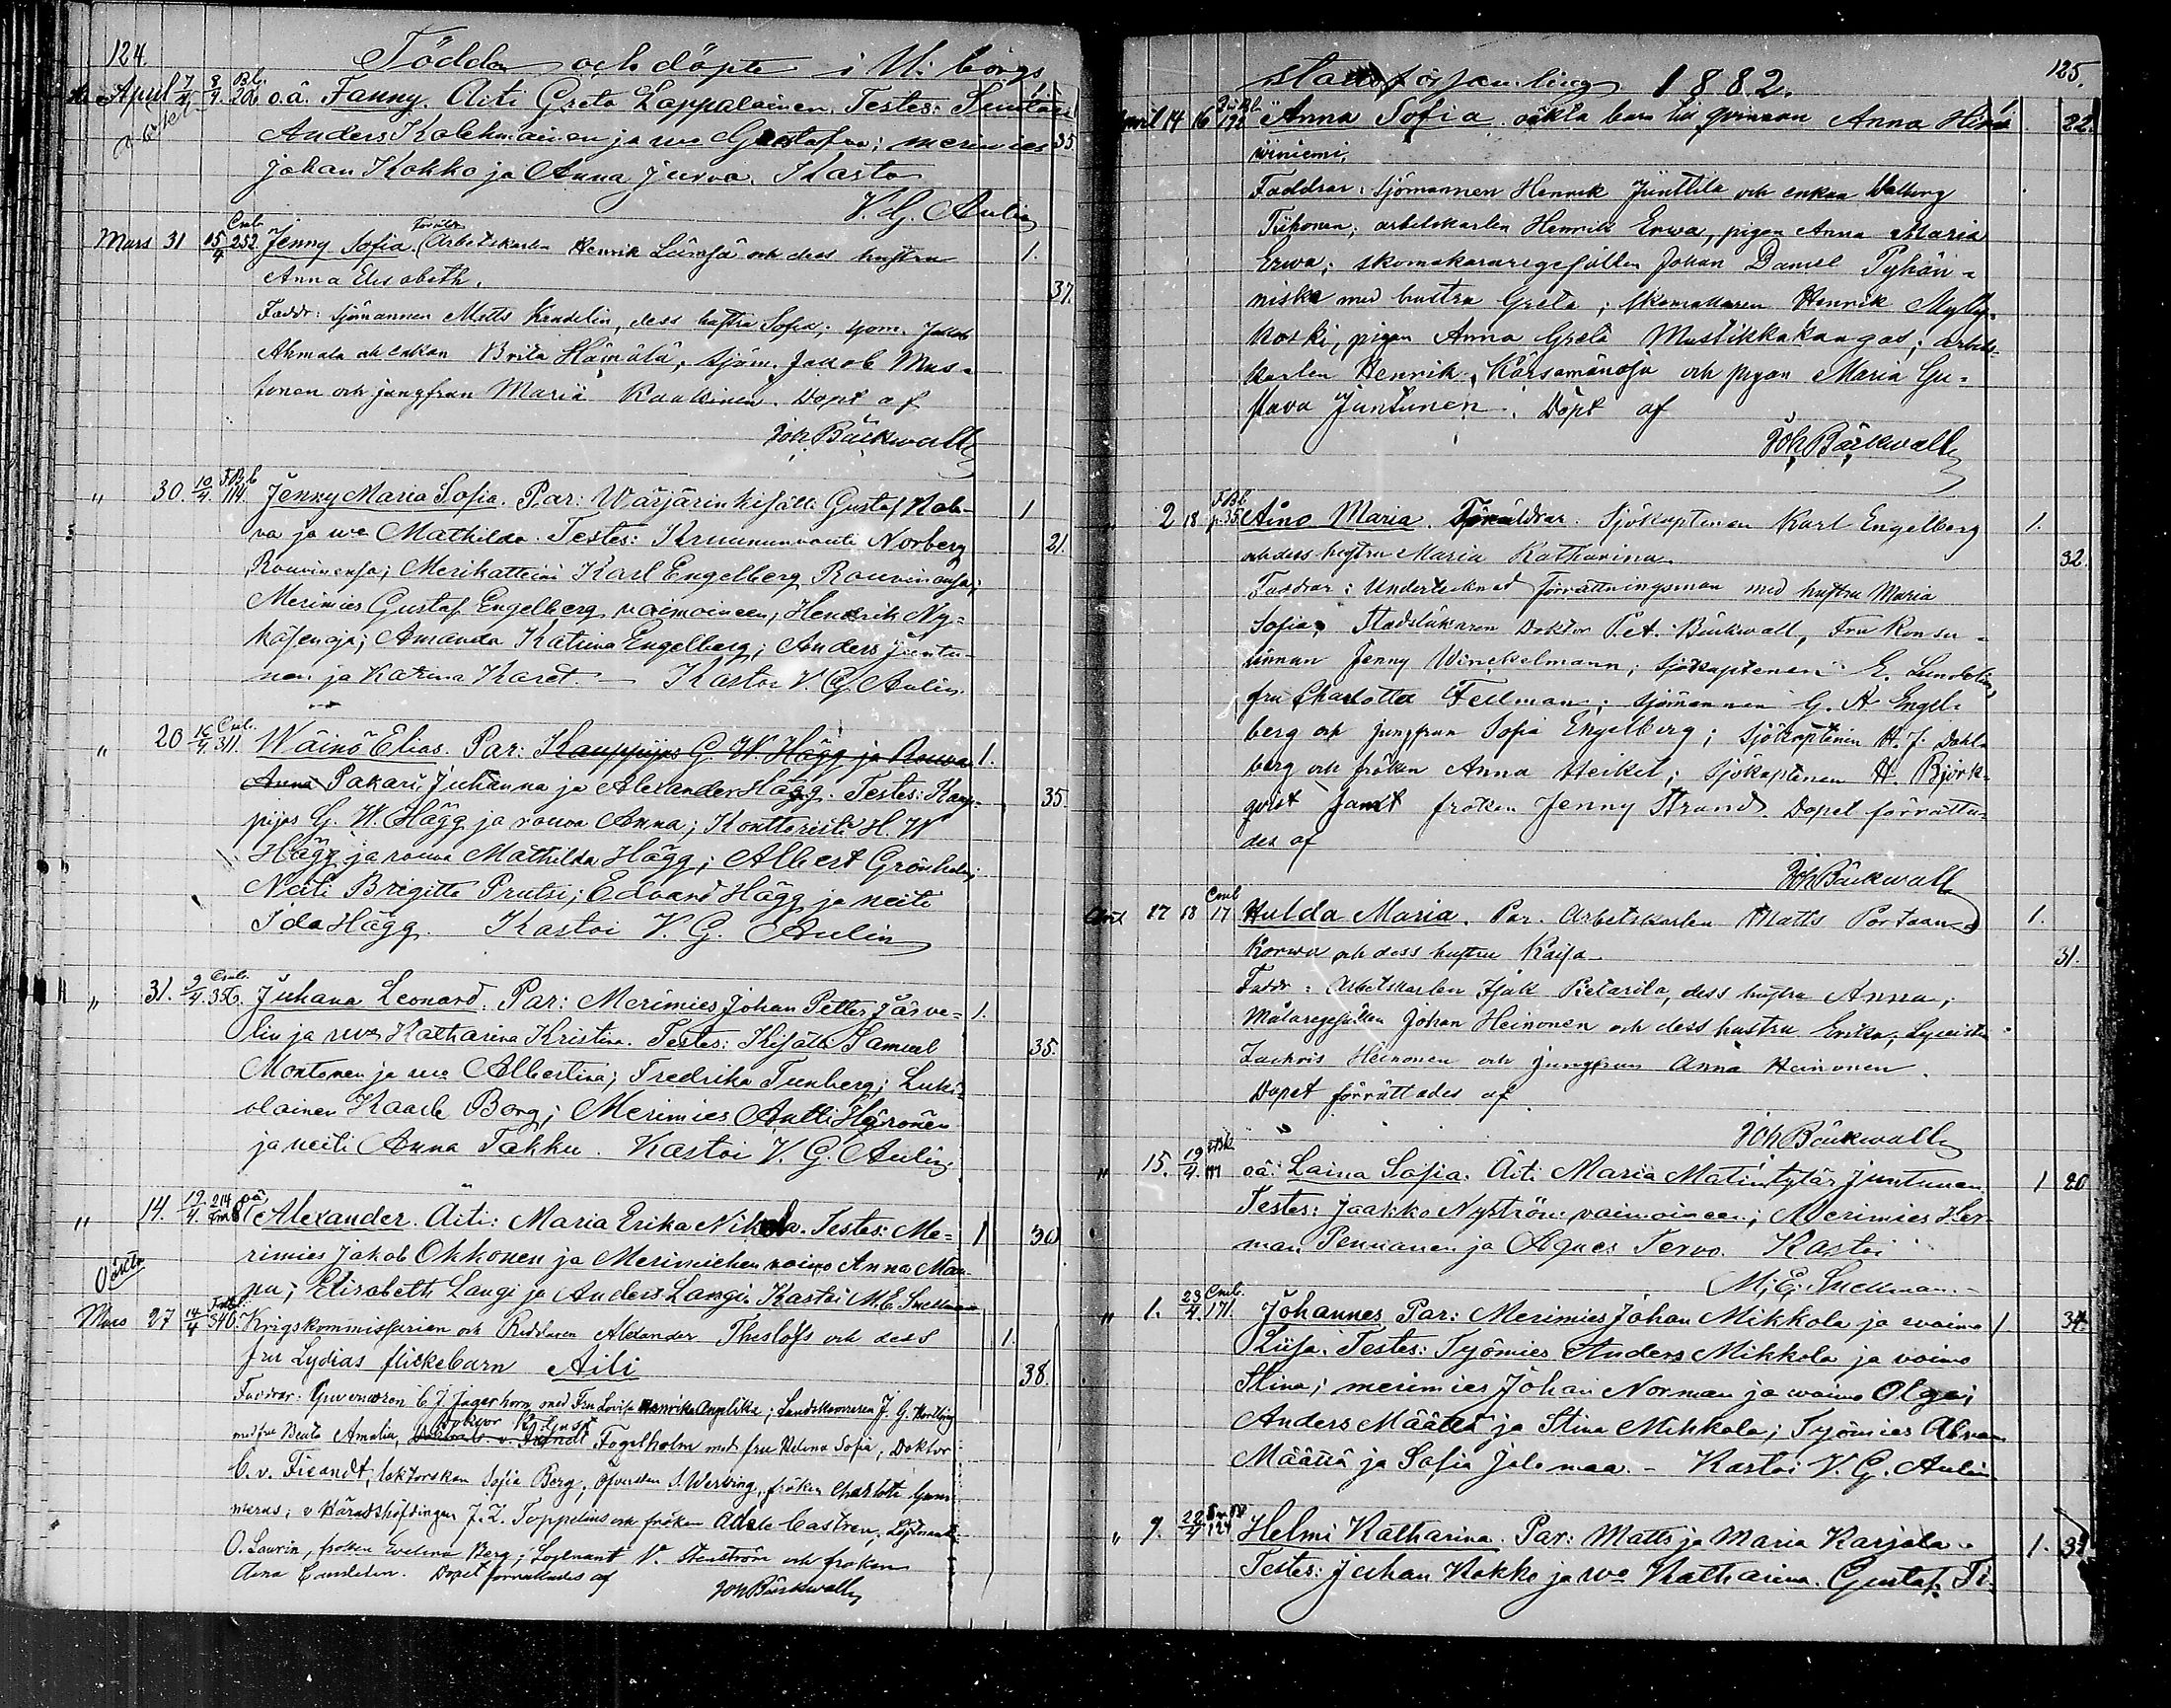 124.
Födda och döpte i Uleåborgs
April 7/4 8/4 Bb. 206 o.ä. Fanny. Äiti Greta Lappalainen. Testes:
Anders Kolehmainen ja wo Gustafva; merimies 35
Johan Kokko ja Anna Jurva. Kastoi
V. G. Aulin
Mars 31 15/4 Cmb. 252 Jenny Sofia. Föräldr. Arbetskarlen Henrik Lämsä och dess hustru 1.
Anna Elisabeth. 37.
Faddr: Sjömannen Matts Kandelin, dess hustru Sofia; sjöm. Jakob
Ahmala och enkan Brita Hämälä; sjöm. Jakob Mus-
tonen och jungfrun Maria Raatikainen. Döpt af
Joh. Bäckwall
„ 30. 10/4. 114. Jenny Maria Sofia. Par: Wärjärinkisälli Gustaf Hal-
va ja wo Mathilda. Testes: Kruununvouti Norberg 1 21.
Rouvinensa; Merikatteini Karl Engelberg Rouvinensa;
Merimies Gustaf Engelberg vaimoineen; Hendrik Ny-
; Amanda Katrina Engelberg; Anders Juntu-
nen ja Katrina Karet. — Kastoi V. G. Aulin.
„ 20 16/4 Cmb. 311. Wäinö Elias. Par: Kauppijas G. W. Hägg ja Rouva 1.
Anna Pakari Juhanna ja Alexander Hägg. Testes: Kaup- 35.
pijas G. W. Hägg ja rouva Anna; Konttoristi H. W
Hägg ja rouva Mathilda Hägg; Albert Grönholm;
Neiti Brigitta Prutsi; Edvard Hägg ja neiti
Ida Hägg. Kastoi V. G. Aulin
„ 31. 9/4. Cmb. 356. Juhana Leonard. Par: Merimies Johan Petter Järve- 1.
lin ja wo Katharina Kristina. Testes: Kisälli Samuel 35.
Montonen ja wo Albertina; Fredrika Tunberg; Luki-
olainen Kaarle Borg; Merimies Antti Härönen
ja neiti Anna Takku. Kastoi V. G. Aulin.
„ 14. 19/4. 214 oä Alexander. Äiti: Maria Erika Nikola. Testes: Me- 1 30
rimies Jakob Okkonen ja Merimiehen vaimo Anna Man-
nu; Elisabeth Langi ja Anders Langi. Kastoi M. E. Snellman
Oäkta
Mars 27 14/4 346. Krigskommissarien och Riddaren Alexander Thesleffs och dess 1.
fru Lydias flickebarn Aili 38.
Faddrar: Guvernören C J Jägerhorn med Fru Lovisa Henrika Angelika; Landskamreren J. G. Hortling
med fru Beata Amalia, Doktor Fogelholm med fru Helena Sofia, Doktor
C. v. Fieandt, doktorskan Sofia Borg, S. Wersving, fröken Charlotte Gum-
merus; v Häradshöfdingen J. L. Toppelius och fröken Adele Castrén, Löjtnant
O. Laurin, fröken Evelina Berg; Löjtnant V. Stenström och fröken
Aina Candelin. Dopet förrättades af Joh Bäckwall
125.
stadsförsamling 1882.
April 14 16 192 Anna Sofia oäkta barn till qvinnan Anna Hirs 1 22.
winiemi,
Faddrar: Sjömannen Henrik Junttila och enkan Walborg
Tiihonen; arbetskarlen Henrik Erwa, pigan Anna Maria
Erwa; skomakaregesällen Johan Daniel Pyhän-
niska med hustru Greta; skomakaren Henrik Mylly-
koski, pigan Anna Greta Mustikkakangas; arbets-
karlen Henrik Kärsämänoja och pigan Maria Gu-
stava Juntunen. Döpt af
Joh Bäckwall
„ 2 18 F.Bb p. 35 Aino Maria. Föräldrar. Sjökaptenen Karl Engelberg 1.
och dess hustru Maria Katharina. 32.
Faddrar: Undertecknad förrättningsman med hustru Maria
Sofia; Stadsläkaren Doktor P. A. Bäckwall, Fru Konsu-
linnan Jenny Winckelmann; Sjökaptenen E. Sundelin,
fru Charlotta Fellman; sjömannen G. A Engel-
berg och jungfrun Sofia Engelberg; Sjökaptenen H. J. Dahl-
berg och fröken Anna Heikel; Sjökaptenen H. Björk-
qvist samt fröken Jenny Strand. Dopet förrätta-
des af
Joh Bäckwall
April 17 18 Cmb 17 Hulda Maria. Par. Arbetskarlen Matts Portaan- 1.
Korwa och dess hustru Kaisa. 31.
Faddr: Arbetskarlen Isak Pietarila, dess hustru Anna;
Målaregesällen Johan Heinonen och dess hustru Erika; Lyceisten
Zachris Heinonen och jungfrun Anna Heinonen.
Dopet förrättades af
Joh Bäckwall
„ 15. 19/4. oä: Laina Sofia. Äiti Maria Matintytär Juntunen 1 20
Testes: Jaakko Nyström vaimoineen; Merimies Her-
man Pennanen ja Agnes Tervo. Kastoi
M. E. Snellman.
„ 1. 23/4. Cmb. 171. Johannes Par: Merimies Johan Mikkola ja waimo 1. 34.
Liisa. Testes: Työmies Anders Mikkola ja vaimo
Stina; merimies Johan Norman ja waimo Olga;
Anders Määttä ja Stina Mikkola; Työmies Abram
Määttä ja Sofia Jolomaa. - Kastoi V. G. Aulin
„ 9. 22/4 124. Helmi Katharina. Par: Matts ja Maria Karjala. 1. 39
Testes: Juhan Kokko ja wo Katharina. Gustaf Ti-